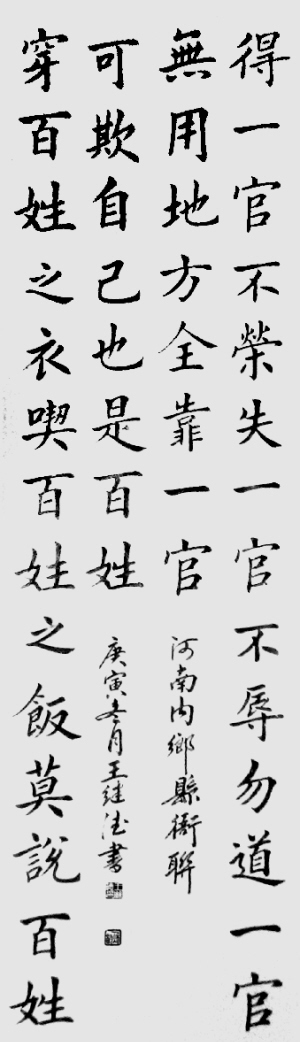 得一官不榮失一官不辱勿道一官
無用地方全靠一官
河南内鄉縣衙聯
穿百姓之衣喫百姓之飯莫說百姓
可欺自己也是百姓
庚寅冬月王继德書